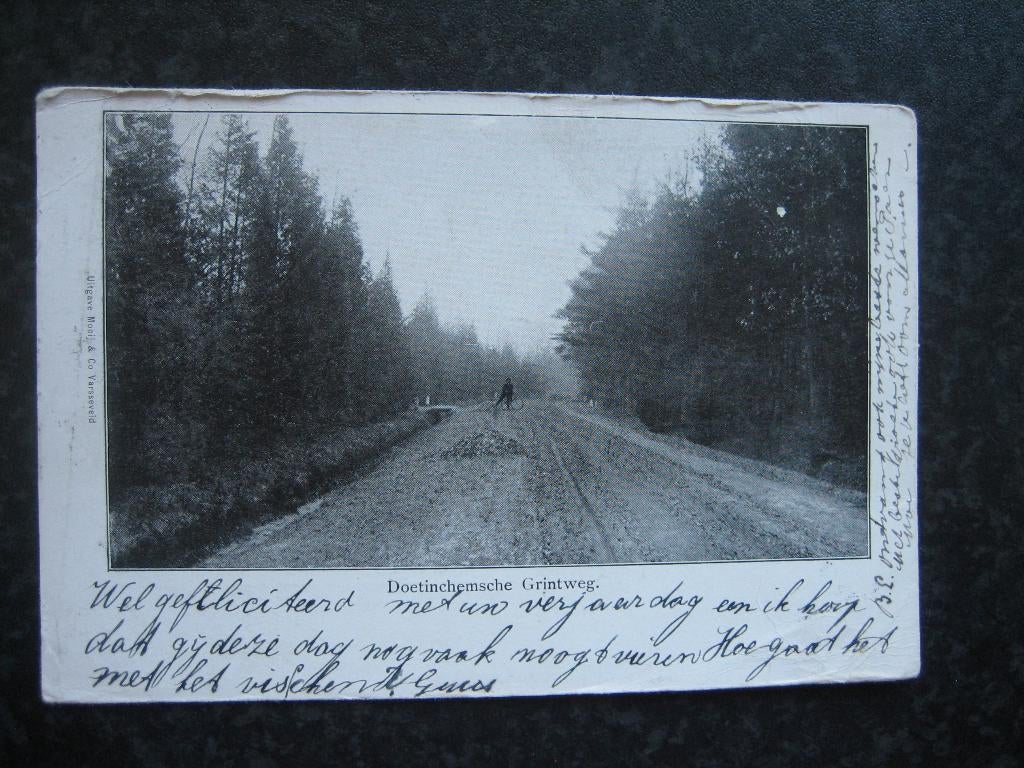 Uitgave Mooij & Co Varsseveld
Doetinchemsche Grintweg.
Wel gefeliciteerd met uw verjaardag en ik hoop
dat gij deze dag nog vaak moogt vieren Hoe gaat het
met het visschen? Guus
B.E. Ontvang ook mijne beste wenschen